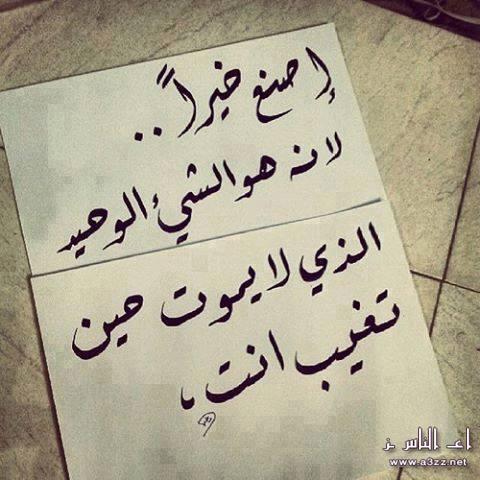 إصنع خيراً..
لانه هو الشيء الوحيد
الذي لا يموت حين
تغيب انت،
www.a3zz.net